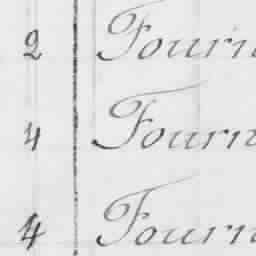 2 Fourn
4 Fourn
4 Fourn